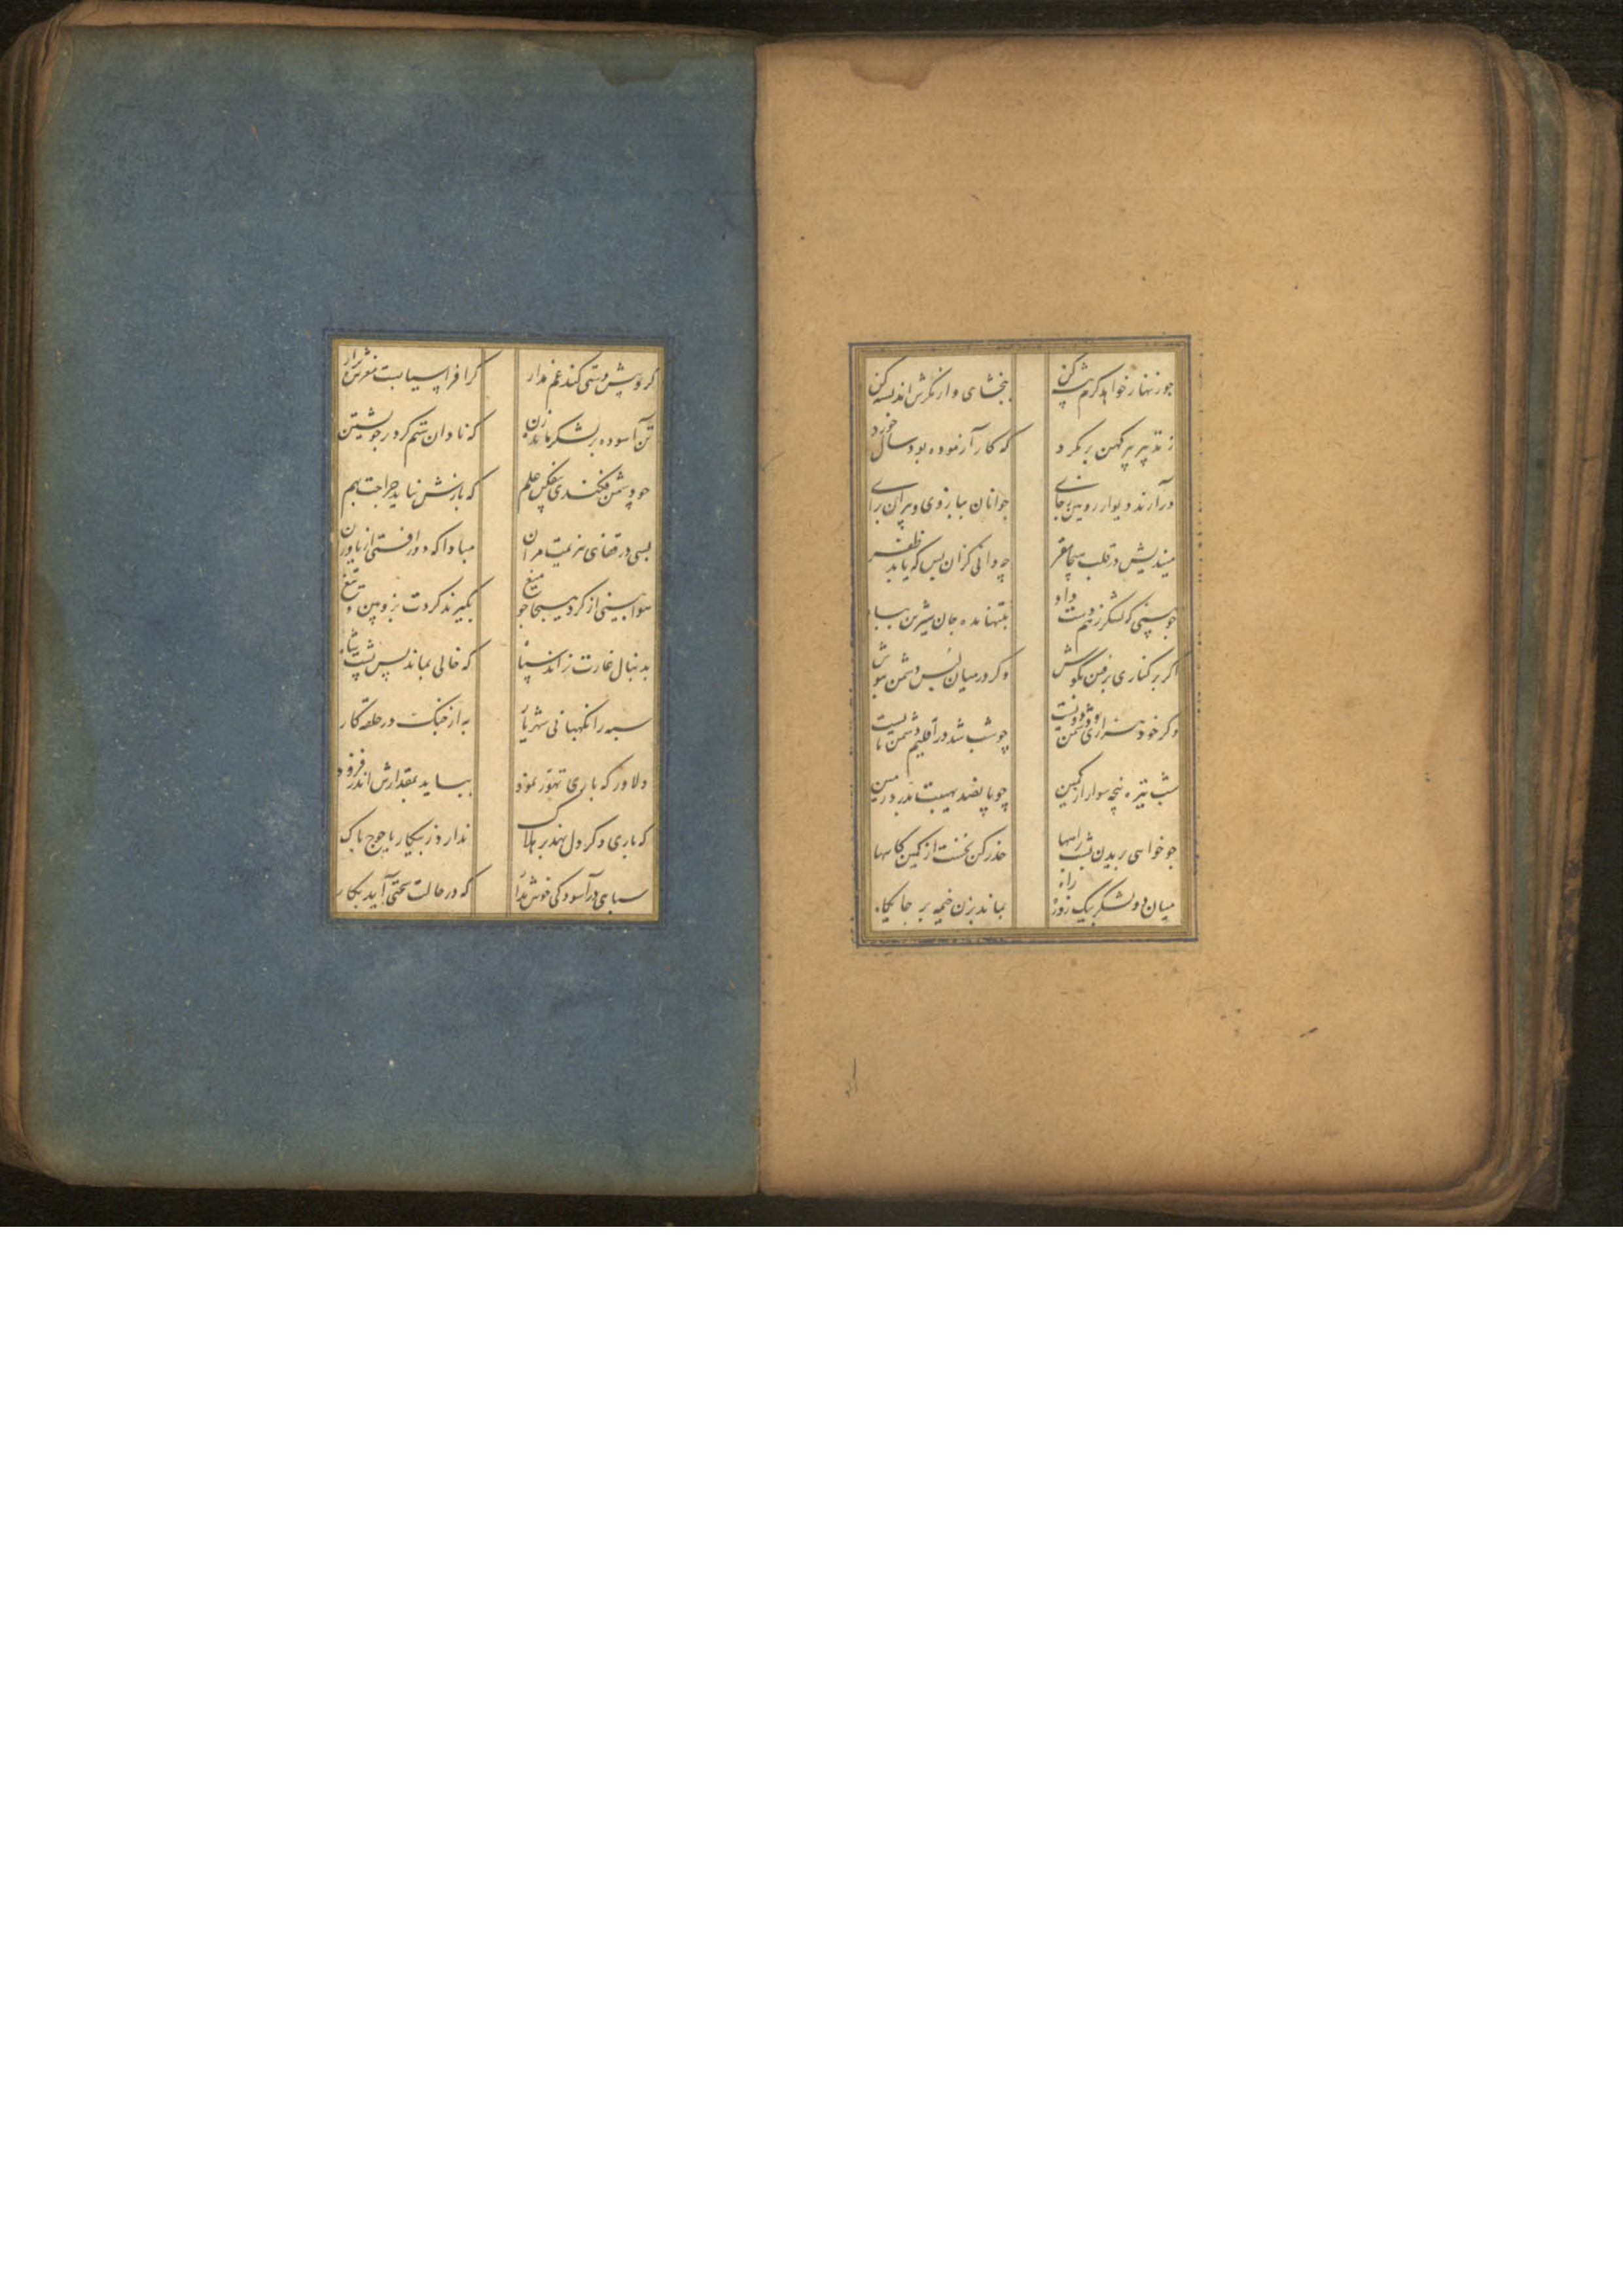 چو زنهار خواهد کرم پیشه کن
ببخشای و از مکرش اندیشه کن
ز تدبیر پیر کهن بر مگرد
که کار آزموده بود سال خورد
درآرند دیوار رویین ز جای
جوانان ببازوی و پیران برای
میندیش در قلب هیجا مفر
چه دانی کزان پس که یابد ظفر
چو بینی که لشکر ز هم دست داد
بتنها مده جان شیرین بباد
اگر بر کناری برفتن بکوش
وگر در میان لبس دشمن بپوش
وگر خود هزاری و دشمن دویست
چو شب شد در اقلیم دشمن مایست
شب تیره پنجه سوار از کمین
چو پانصد بهیبت بدرد زمین
چو خواهی بریدن بشب راهها
حذر کن نخست از کمین گاهها
میان دو لشکر چو یک روزه راه
بماند بزن خیمه بر جایگاه
گر او پیش دستی کند غم مدار
گر افراسیابست مغزش برآر
تن آسوده بر لشکر مانده زن
که نادان ستم کرد بر خویشتن
چو دشمن فکندی بیفکن علم
که بازش نیاید جراحت بهم
بسی در قفای هزیمت مران
مبادا که دور افتی از یاوران
هوا بینی از گرد هیجا چو میغ
بگیرند گردت بزوبین و تیغ
بدنبال غارت نراند سپاه
که خالی بماند پس پشت شاه
سپه را نگهبانی شهریار
به از جنگ در حلقه کارزار
دلاور که باری تهور نمود
بباید بمقدارش اندر فزود
که باری دگر دل نهد بر هلاک
ندارد ز پیکار یاجوج باک
سپاهی در آسودگی خوش بدار
که در حالت سختی آید بکار